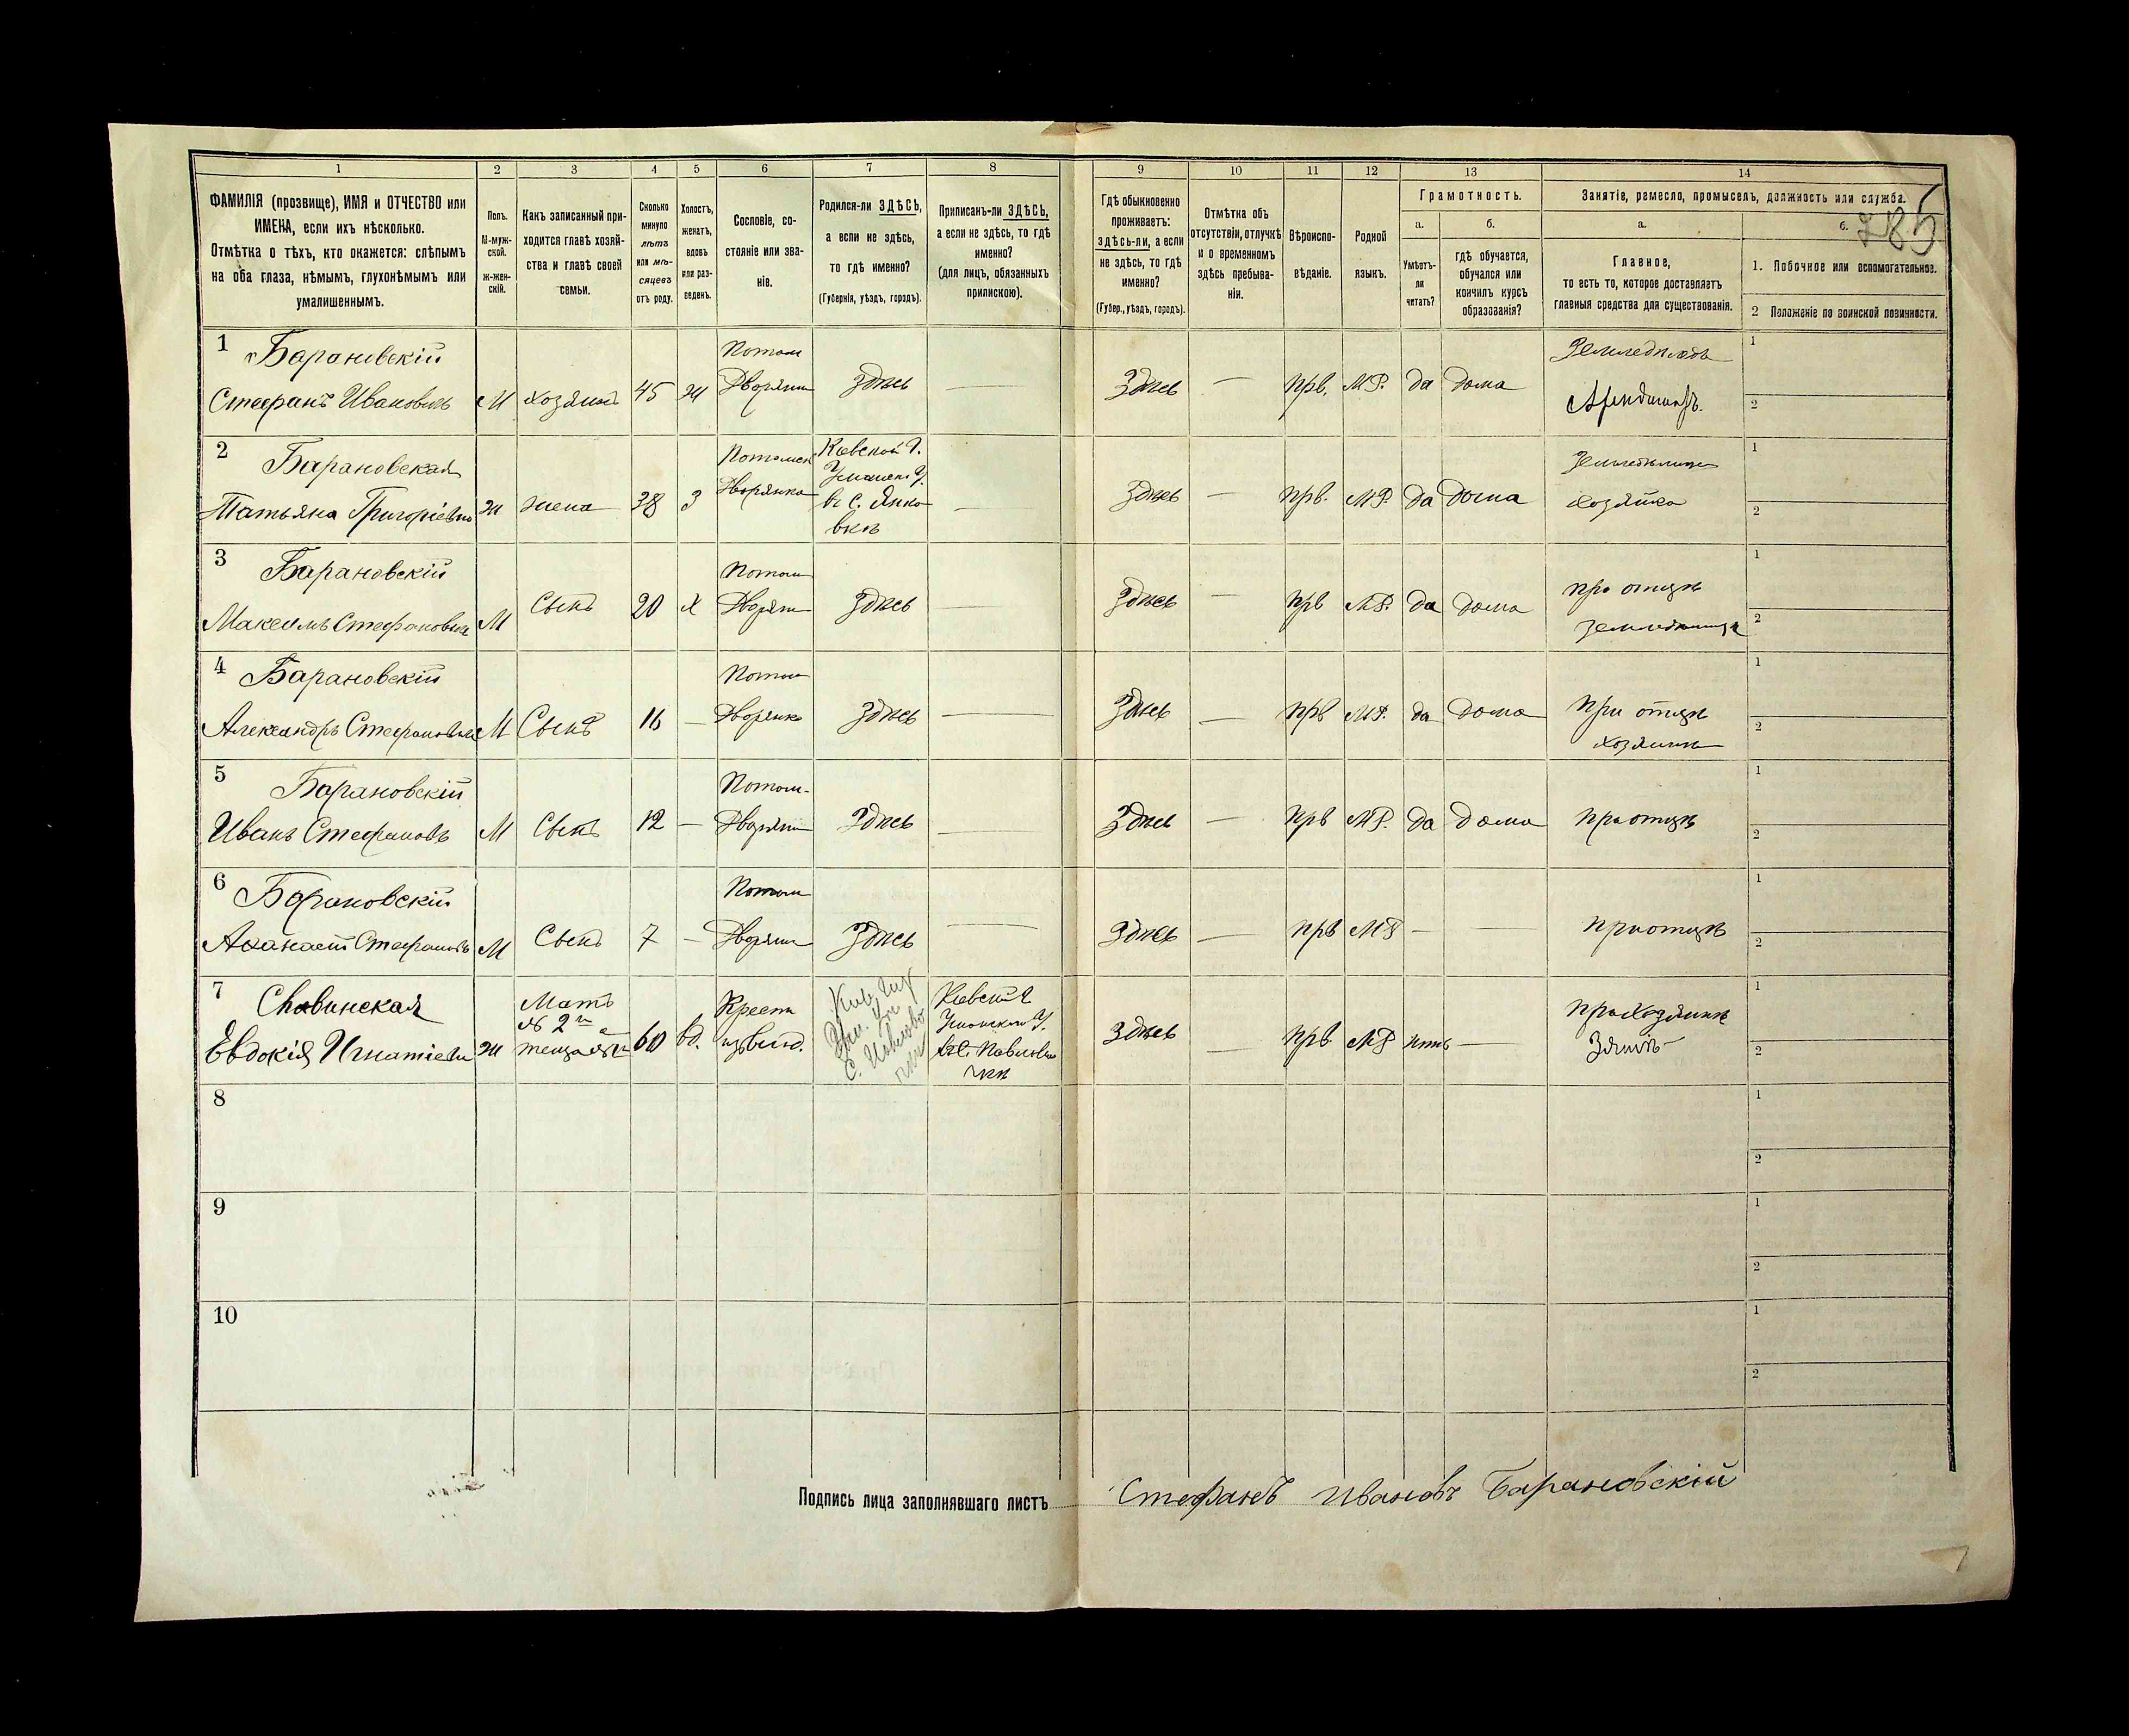 1
2
3
4
5
6
7
8
9
10
11
12
13
14
ФАМИЛІЯ (прозвище), ИМЯ и ОТЧЕСТВО или
ИМЕНА, если ихъ нѣсколько.
Отмѣтка о тѣхъ, кто окажется: слѣпымъ
на оба глаза, нѣмымъ, глухонѣмымъ или
умалишеннымъ.
Полъ.
М-муж-
ской.
ж-жен-
скій.
Какъ записанный при-
ходится главѣ хозяй-
ства и главѣ своей
семьи.
Сколько
минуло
лѣтъ
или мѣ-
сяцевъ
отъ роду.
Холостъ,
женатъ,
вдовъ
или раз-
веденъ.
Сословіе, со-
стояніе или зва-
ніе.
Родился-ли ЗДѢСЬ,
а если не здѣсь,
то гдѣ именно?
(Губернія, уѣздъ, городъ).
Приписанъ-ли ЗДѢСЬ,
а если не здѣсь, то гдѣ
именно?
(для лицъ, обязанныхъ
припискою).
Гдѣ обыкновенно
проживаетъ:
здѣсь-ли, а если
не здѣсь, то гдѣ
именно?
(Губер., уѣздъ, городъ).
Отмѣтка объ
отсутствіи, отлучкѣ
и о временномъ
здѣсь пребыва-
ніи.
Вѣроиспо-
вѣданіе.
Родной
языкъ.
Грамотность.
а.
Умѣетъ-
ли
читать?
б.
гдѣ обучается,
обучался или
кончилъ курсъ
образованія?
Занятіе, ремесло, промыселъ, должность или служба.
785
а.
Главное,
то есть то, которое доставляетъ
главныя средства для существованія.
б.
1. Побочное или вспомогательное.
2 Положеніе по воинской повинности.
1 Барановскій
Стефанъ Ивановичъ
М
Хозяинъ
45
ж
Потом
Дворянин
Здѣсь
—
Здѣсь
—
прв.
М.Р.
да
дома
Земледѣлецъ
Арендаторъ.
1
2
2 Барановская
Татьяна Григоріевна
ж
жена
38
З
Потомст
Дворянка
Кіевской Г.
Уманск У.
въ с. Янко
вкѣ
—
Здѣсь
—
прв.
М.Р.
да
дома
хозяйка
1
2
3 Барановскій
Максимъ Стефановичъ
М
Сынъ
20
Х
Потом
Дворянин
Здѣсь
—
Здѣсь
—
прв
М.Р.
да
дома
при отцѣ
1
2
4 Барановскій
Александръ Стефановичъ
М
Сынъ
16
—
Потом
Здѣсь
—
Здѣсь
—
прв
М.Р.
да
дома
при отцѣ
хозяинѣ
1
2
5 Барановскій
Иванъ Стефановъ
М
Сынъ
12
—
Потом-
Дворянин
Здѣсь
—
Здѣсь
—
прв
М.Р.
да
дома
при отцѣ
1
2
6 Барановскій
Аѳанасій Стефановъ
М
Сынъ
7
—
Потом
Дворянин
Здѣсь
—
Здѣсь
—
прв
МР
—
—
при отцѣ
1
2
7
Евдокія Игнатіевна
ж
Мать
№ 2й
теща
60
вд.
Крестьян
Кіевской Г
Уманскаго У.
Здѣсь
—
прв
МР
нѣтъ
—
при хозяинѣ
Зятѣ
1
2
8
1
2
9
1
2
10
1
2
Подпись лица заполнявшаго листъ
Стефанъ Ивановъ Барановскій